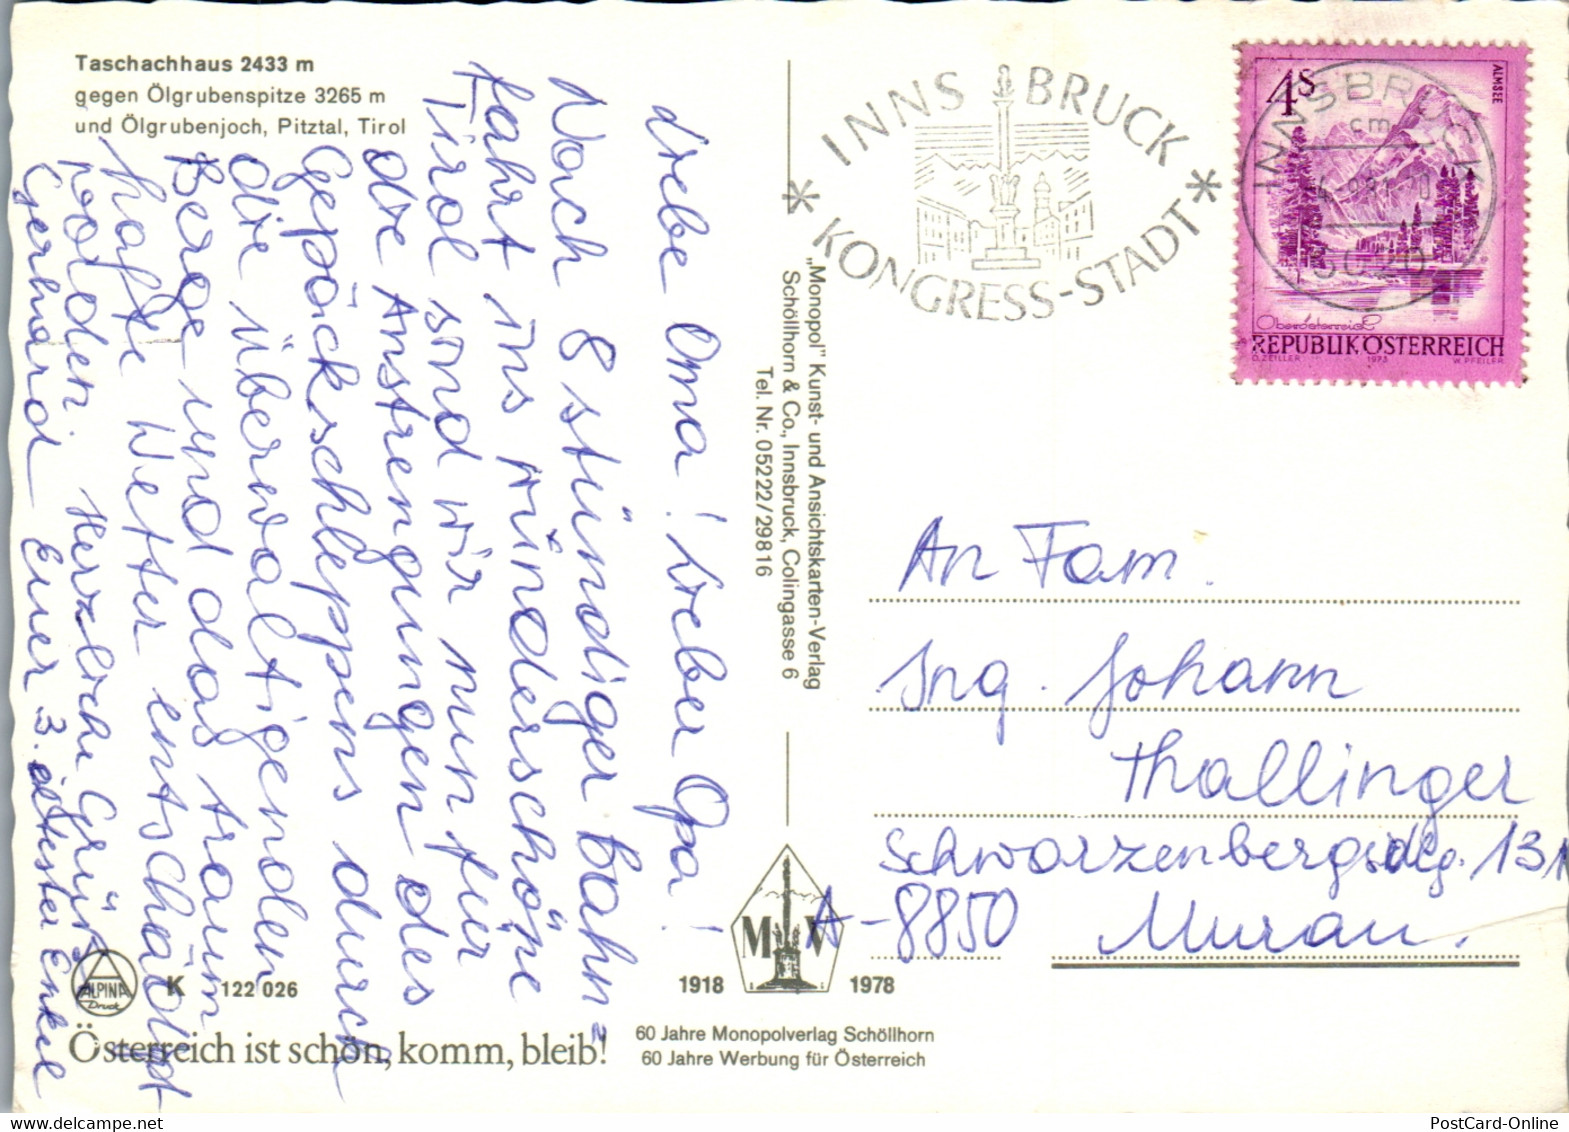 Taschachhaus 2433 m
gegen Ölgrubenspitze 3265 m
und Ölgrubenjoch, Pitztal, Tirol
Liebe Oma! Lieber Opa!
Nach 8 stündiger Bahn=
fahrt ins wunderschöne
Tirol sind wir nun für
die Anstrengungen des
Gepäckschleppens durch
die überwältigenden
Berge und das traum
hafte Wetter entschädigt
worden. Herzliche Grüße
Euer 3. ältester Enkel
Gerhard
„Monopol" Kunst- und Ansichtskarten-Verlag
Schöllhorn & Co., Innsbruck, Colingasse 6
Tel. Nr. 05222/29816
INNSBRUCK
* KONGRESS-STADT *
4S
ALMSEE
Oberösterreich
REPUBLIK ÖSTERREICH
O.ZEILLER 1973 W.PFEILER
INNSBRUCK
cm
6020
An Fam.
Ing. Johann
Thallinger
Schwarzenbergsdlg. 131
A-8850 Murau.
M V
1918 1978
60 Jahre Monopolverlag Schöllhorn
60 Jahre Werbung für Österreich
ALPINA
Druck
K 122 026
Österreich ist schön, komm, bleib!
PostCard-Online